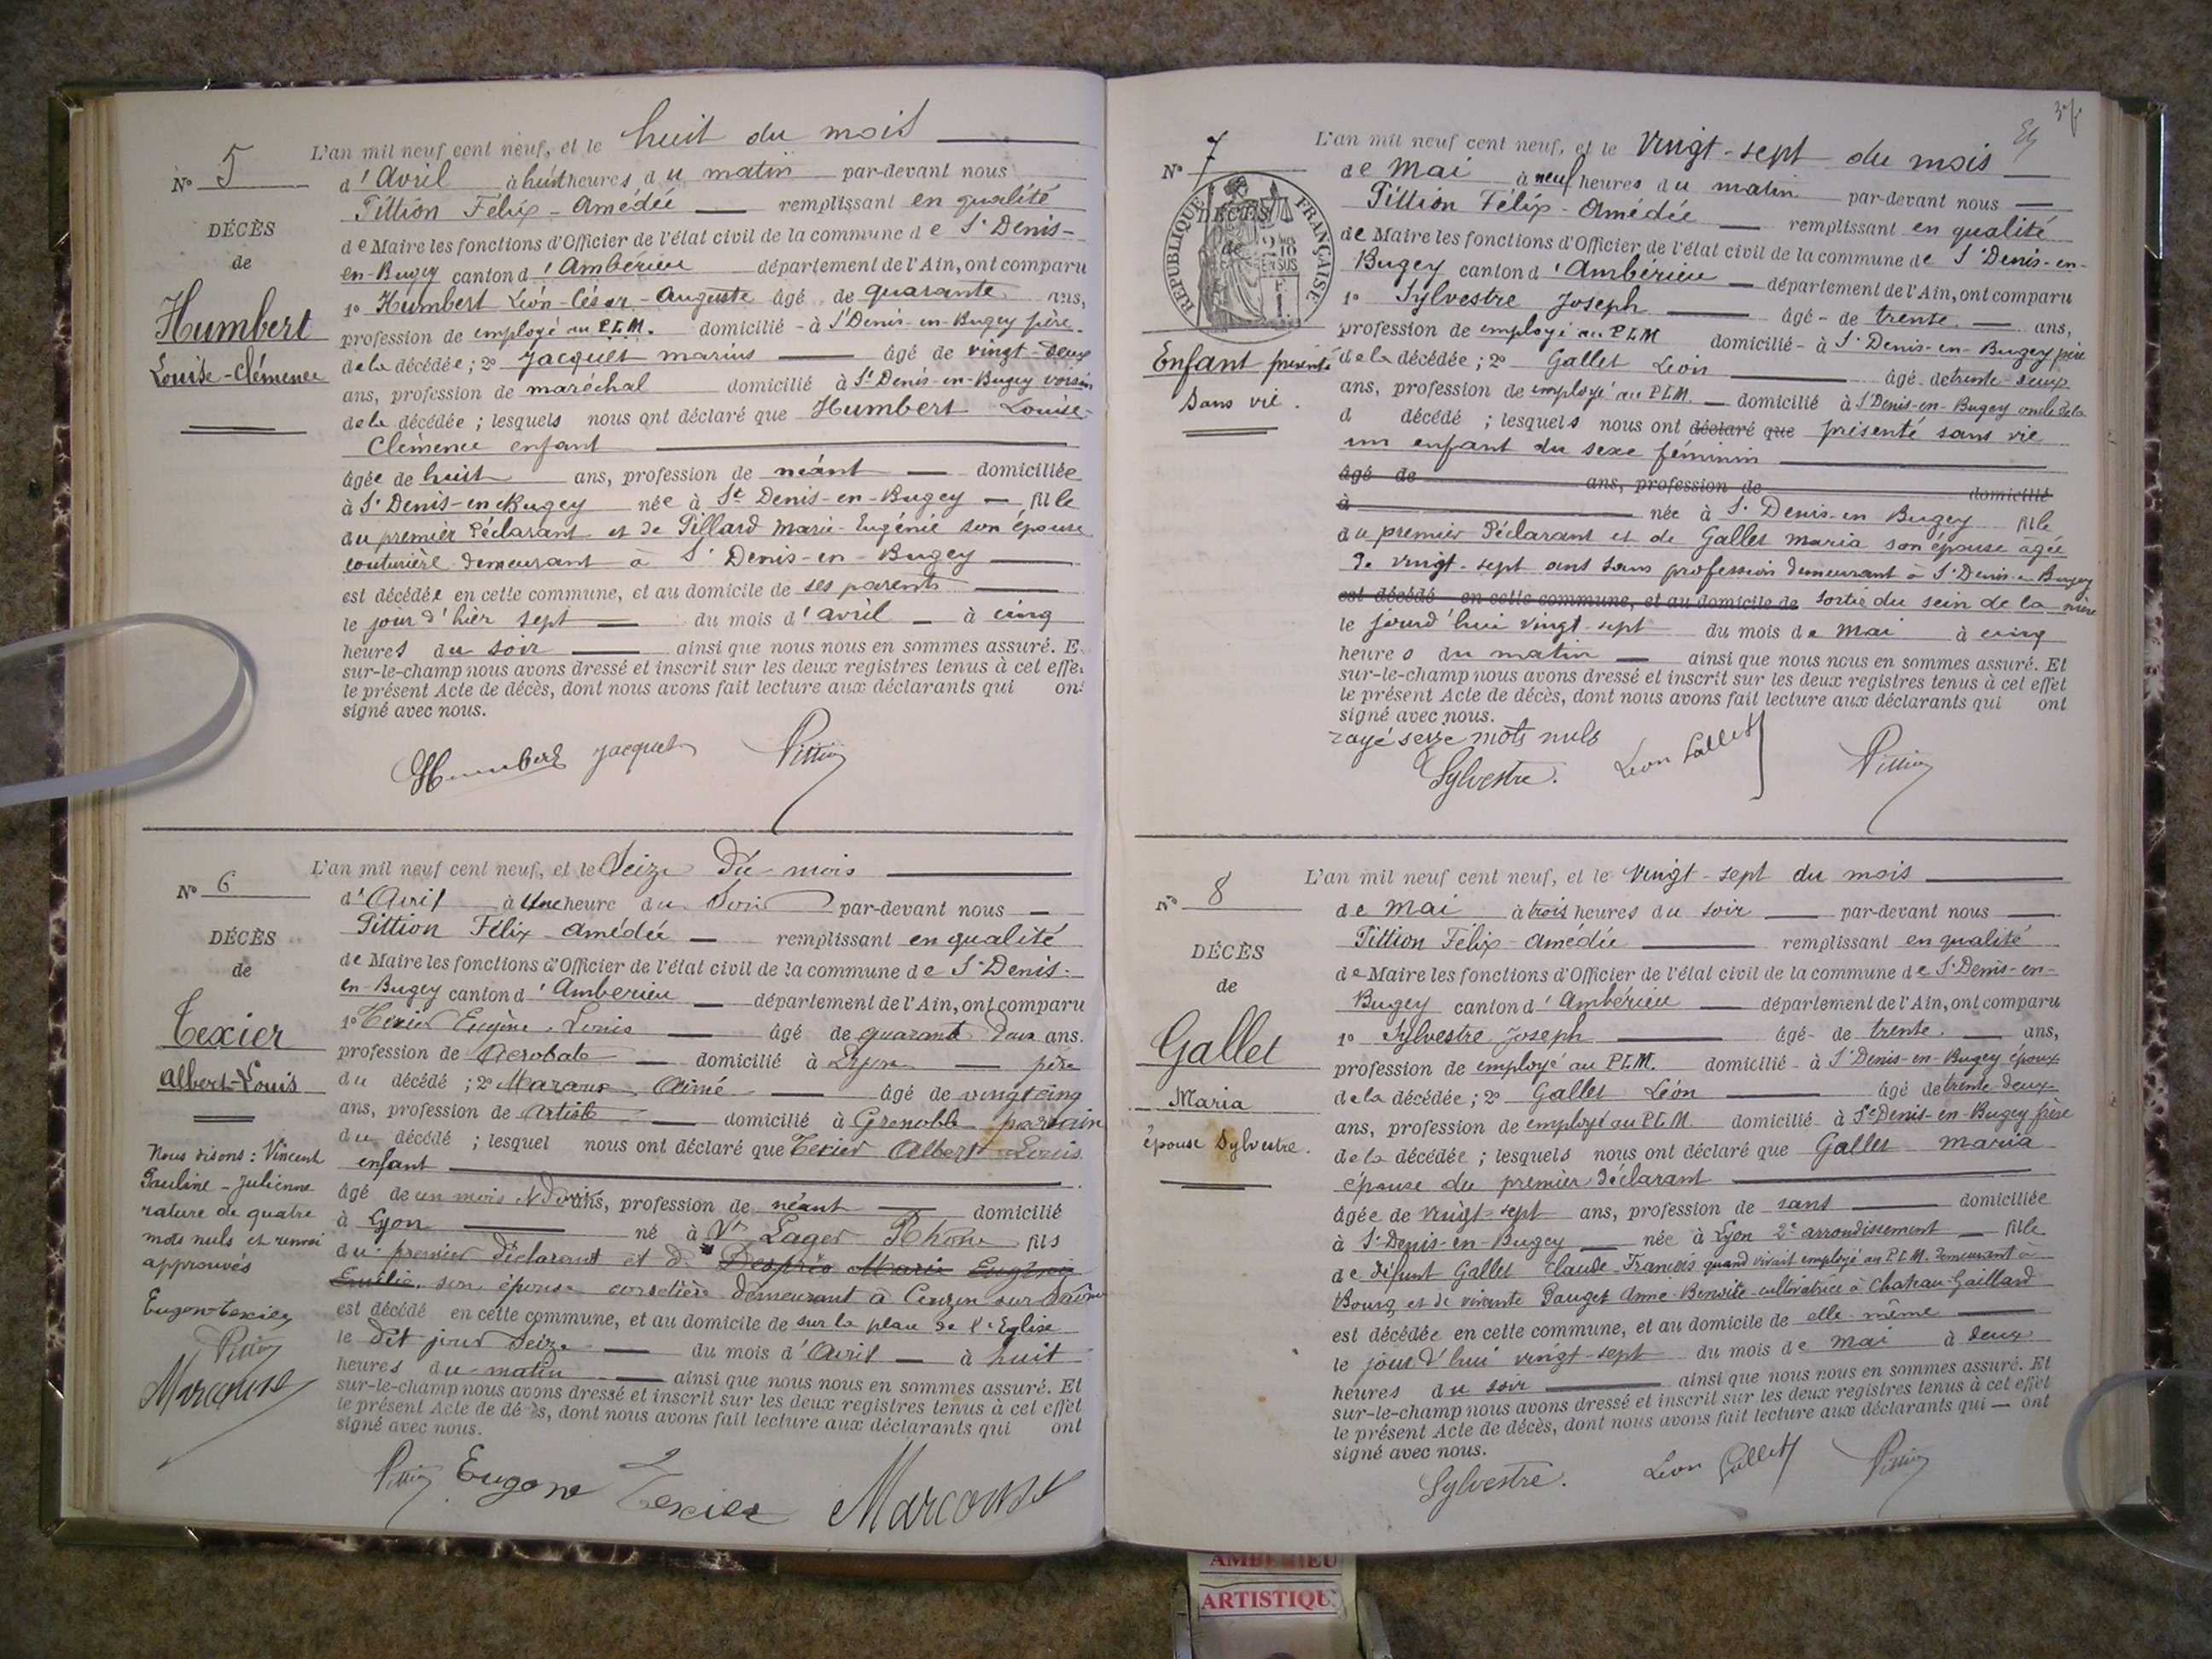 L'an mil neuf cent neuf, et le huit du mois
N° 5
d'Avril à huit heures du matin par-devant nous
Pittion Félix-Amédée remplissant en qualité
DÉCÈS
de Maire les fonctions d'Officier de l'état civil de la commune de St Denis-
de
en-Bugey canton d'Ambérieu département de l'Ain, ont comparu
1° Humbert Léon-César-Auguste âgé de quarante ans,
Humbert
profession de employé au P.L.M. domicilié à St Denis-en-Bugey père
Louise-Clémence
de la décédée; 2° Jacquet Marius âgé de vingt-deux
ans, profession de maréchal domicilié à St Denis-en-Bugey voisin
de la décédée; lesquels nous ont déclaré que Humbert Louise-
Clémence enfant
âgée de huit ans, profession de néant domiciliée
à St Denis-en-Bugey née à St Denis-en-Bugey fille
du premier déclarant et de Pillard Marie-Eugénie son épouse
couturière demeurant à St Denis-en-Bugey
est décédée en cette commune, et au domicile de ses parents
le jour d'hier sept du mois d'avril à cinq
heures du soir ainsi que nous nous en sommes assuré. E
sur-le-champ nous avons dressé et inscrit sur les deux registres tenus à cet effe
le présent Acte de décès, dont nous avons fait lecture aux déclarants qui on
signé avec nous.
Humbert Jacquet Pittion
L'an mil neuf cent neuf, et le Seize du mois
N° 6
d'Avril à Une heure du Soir par-devant nous
Pittion Félix-Amédée remplissant en qualité
DÉCÈS
de Maire les fonctions d'Officier de l'état civil de la commune de St Denis-
de
en-Bugey canton d'Ambérieu département de l'Ain, ont comparu
Texier
1° Texier Eugène-Louis âgé de quarante deux ans.
profession de Acrobate domicilié à Lyon père
Albert-Louis
du décédé; 2° Aimé âgé de vingt cinq
ans, profession de artiste domicilié à Grenoble parrain
du décédé; lesquel nous ont déclaré que Texier Albert Louis
enfant
Nous disons: Vincent
Pauline-Julienne
rature de quatre
mots nuls et renvoi
approuvés
Eugene Texier
Pittion
Marcouse
âgé de un mois et demi ans, profession de néant domicilié
à Lyon né à St Lager Rhône fils
du premier déclarant et de Marie Eugénie
Emilie son épouse corsetière demeurant à sur Saône
est décédé en cette commune, et au domicile de sur la place de l'Eglise
le dit jour Seize du mois d'Avril à huit
heures du matin ainsi que nous nous en sommes assuré. Et
sur-le-champ nous avons dressé et inscrit sur les deux registres tenus à cet effet
le présent Acte de décès, dont nous avons fait lecture aux déclarants qui ont
signé avec nous.
Pittion Eugene Texier Marcouse
L'an mil neuf cent neuf, et le Vingt-sept du mois
N° 7
de Mai à neuf heures du matin par-devant nous
Pittion Félix-Amédée remplissant en qualité
RÉPUBLIQUE FRANÇAISE
DÉCÈS
de
de Maire les fonctions d'Officier de l'état civil de la commune de St Denis-en-
Bugey canton d'Ambérieu département de l'Ain, ont comparu
1° Sylvestre Joseph âgé de trente ans,
profession de employé au PLM domicilié à St Denis-en-Bugey père
Enfant présenté
sans vie.
de la décédée; 2° Gallet Léon âgé de trente-deux
ans, profession de employé au P.L.M. domicilié à St Denis-en-Bugey oncle de la
d décédé; lesquels nous ont déclaré que présenté sans vie
un enfant du sexe féminin
âgé de ans, profession de domicilié
à née à St Denis-en Bugey fille
du premier Déclarant et de Gallet Maria son épouse âgée
de vingt-sept ans sans profession demeurant à St Denis-en Bugey
est décédé en cette commune, et au domicile de sortie du sein de la mère
le jourd'hui vingt-sept du mois de Mai à cinq
heures du matin ainsi que nous nous en sommes assuré. Et
sur-le-champ nous avons dressé et inscrit sur les deux registres tenus à cet effet
le présent Acte de décès, dont nous avons fait lecture aux déclarants qui ont
signé avec nous.
rayé seize mots nuls
Sylvestre. Léon Gallet Pittion
L'an mil neuf cent neuf, et le Vingt-sept du mois
N° 8
de Mai à trois heures du soir par-devant nous
Pittion Félix-Amédée remplissant en qualité
DÉCÈS
de Maire les fonctions d'Officier de l'état civil de la commune de St Denis-en-
de
Bugey canton d'Ambérieu département de l'Ain, ont comparu
1° Sylvestre Joseph âgé de trente ans,
Gallet
profession de employé au P.L.M. domicilié à St Denis-en-Bugey époux
Maria
de la décédée; 2° Gallet Léon âgé de trente-deux
ans, profession de employé au P.L.M. domicilié à St Denis-en-Bugey frère
épouse Sylvestre.
de la décédée; lesquels nous ont déclaré que Gallet Maria
épouse du premier déclarant
âgée de vingt-sept ans, profession de sans domiciliée
à St Denis-en-Bugey née à Lyon 2e arrondissement fille
de défunt Gallet Claude-Francois quand vivait employé au P.L.M. demeurant à
Bourg et de vivante Pauget Anne-Benoîte cultivatrice à Chateau-Gaillard
est décédée en cette commune, et au domicile de elle-même
le jourd'hui vingt-sept du mois de mai à deux
heures du soir ainsi que nous nous en sommes assuré. Et
sur-le-champ nous avons dressé et inscrit sur les deux registres tenus à cet effet
le présent Acte de décès, dont nous avons fait lecture aux déclarants qui ont
signé avec nous.
Sylvestre. Léon Gallet Pittion
AMBERIEU
ARTISTIQU